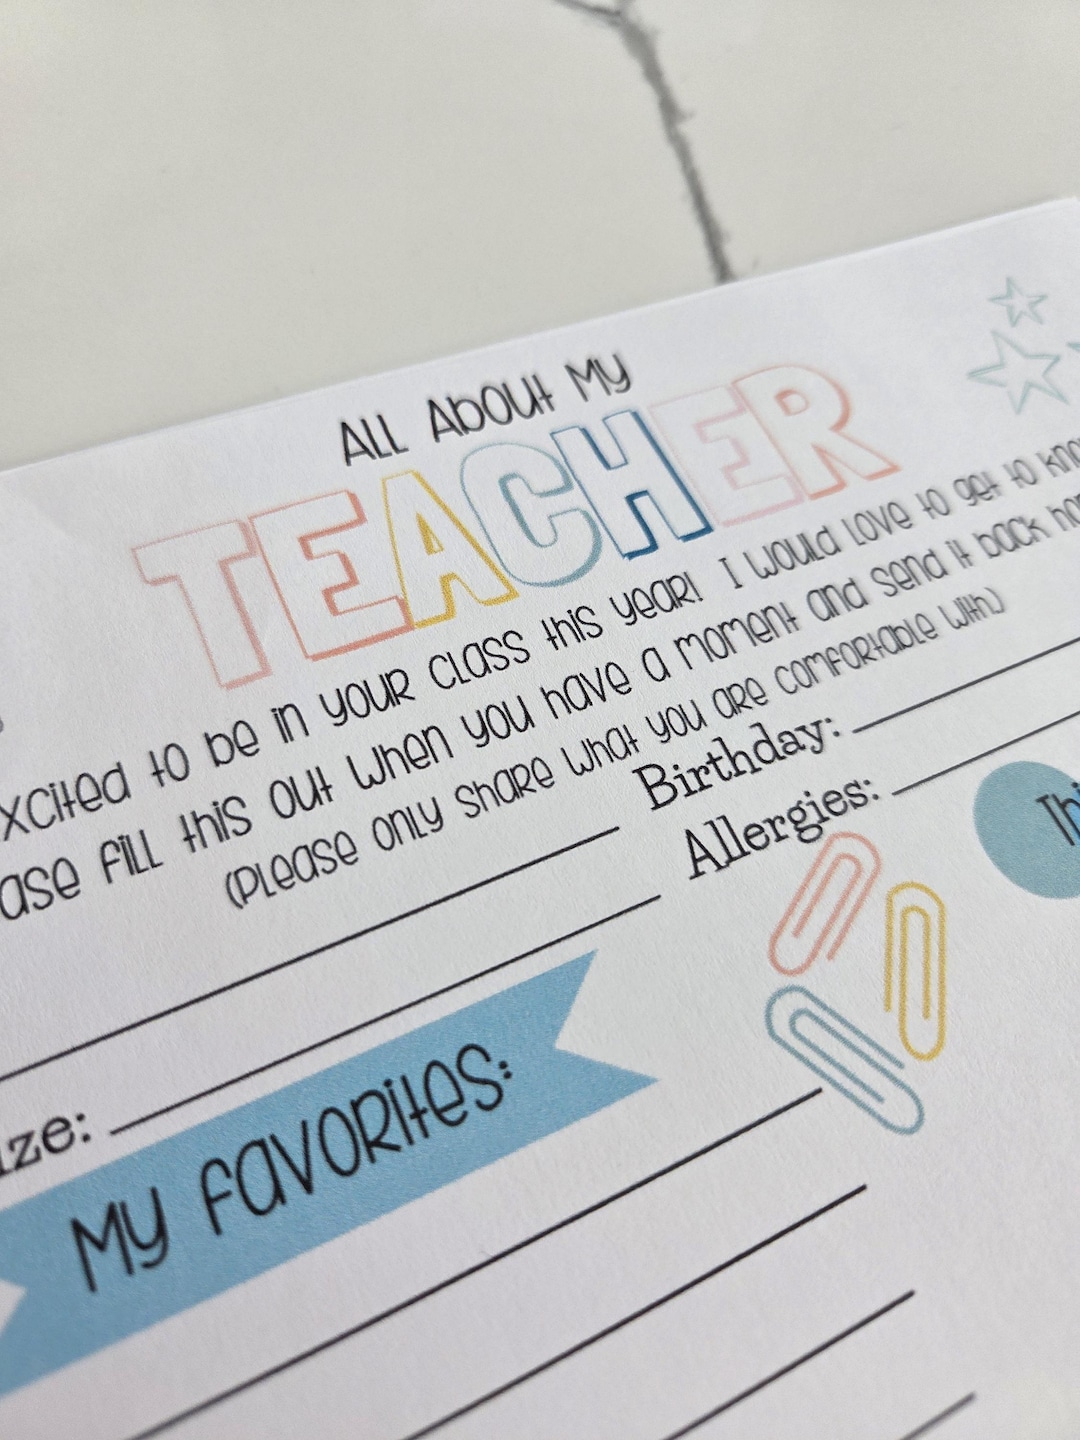 All About My
TEACHER
xcited to be in your class this year! I would love to get to kno
ase fill this out when you have a moment and send it back ho
(Please only share what you are comfortable with)
Birthday:
Allergies:
Thi
ize:
My Favorites: